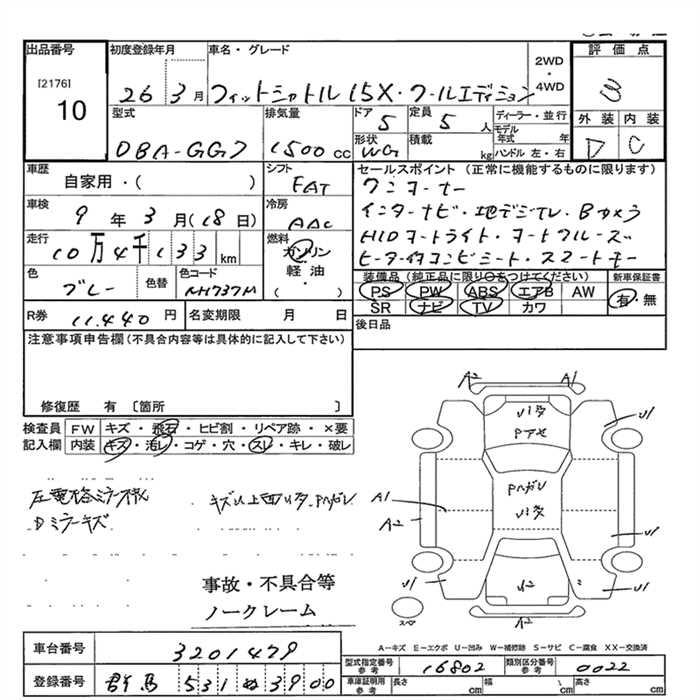 出品番号 初度登録年月 車名・グレード 評価点
[2176]
10
26年 3月 フィットシャトル 15X・クールエディション 2WD・4WD 3
型式 排気量 ドア 5 定員 5人 ディーラー・並行 外装 内装
DBA-GG7 1500cc 形状 WG 積載 kg モデル年式 年 ハンドル 左・右 D C
車歴 シフト セールスポイント(正常に機能するものに限ります)
自家用・( ) FAT ワンオーナー
車検 9年 3月(18日) 冷房 AAC インターナビ・地デジTV・Bカメラ
走行 10万4千133km 燃料 ガソリン・軽油・( ) HIDオートライト・オートクルーズ
ヒーター付コンビシート・スマートキー
色 グレー 色替 色コード NH737M 装備品(純正品に限り○をつけてください) 新車保証書
PS PW ABS エアB AW 有・無
SR ナビ TV カワ
R券 11.440円 名変期限 月 日 後日品
注意事項申告欄(不具合内容等は具体的に記入して下さい)
修復歴 有〔箇所 〕
検査員 FW キズ・飛石・ヒビ割・リペア跡・×要
記入欄 内装 キズ・汚レ・コゲ・穴・スレ・キレ・破レ
A2 A1
U1
Pアセ
A1
A2
Pハガレ
U1
U1
U1
U1
A2
スペア
A2
Dミラーキズ
事故・不具合等
ノークレーム
A-キズ E-エクボ U-凹み W-補修跡 S-サビ C-腐食 XX-交換済
車台番号 3201479
型式指定番号 参考 16802 類別区分番号 参考 0022
登録番号 群馬 531 ぬ 3900
車庫証明用 参考 長さ cm 幅 cm 高さ cm